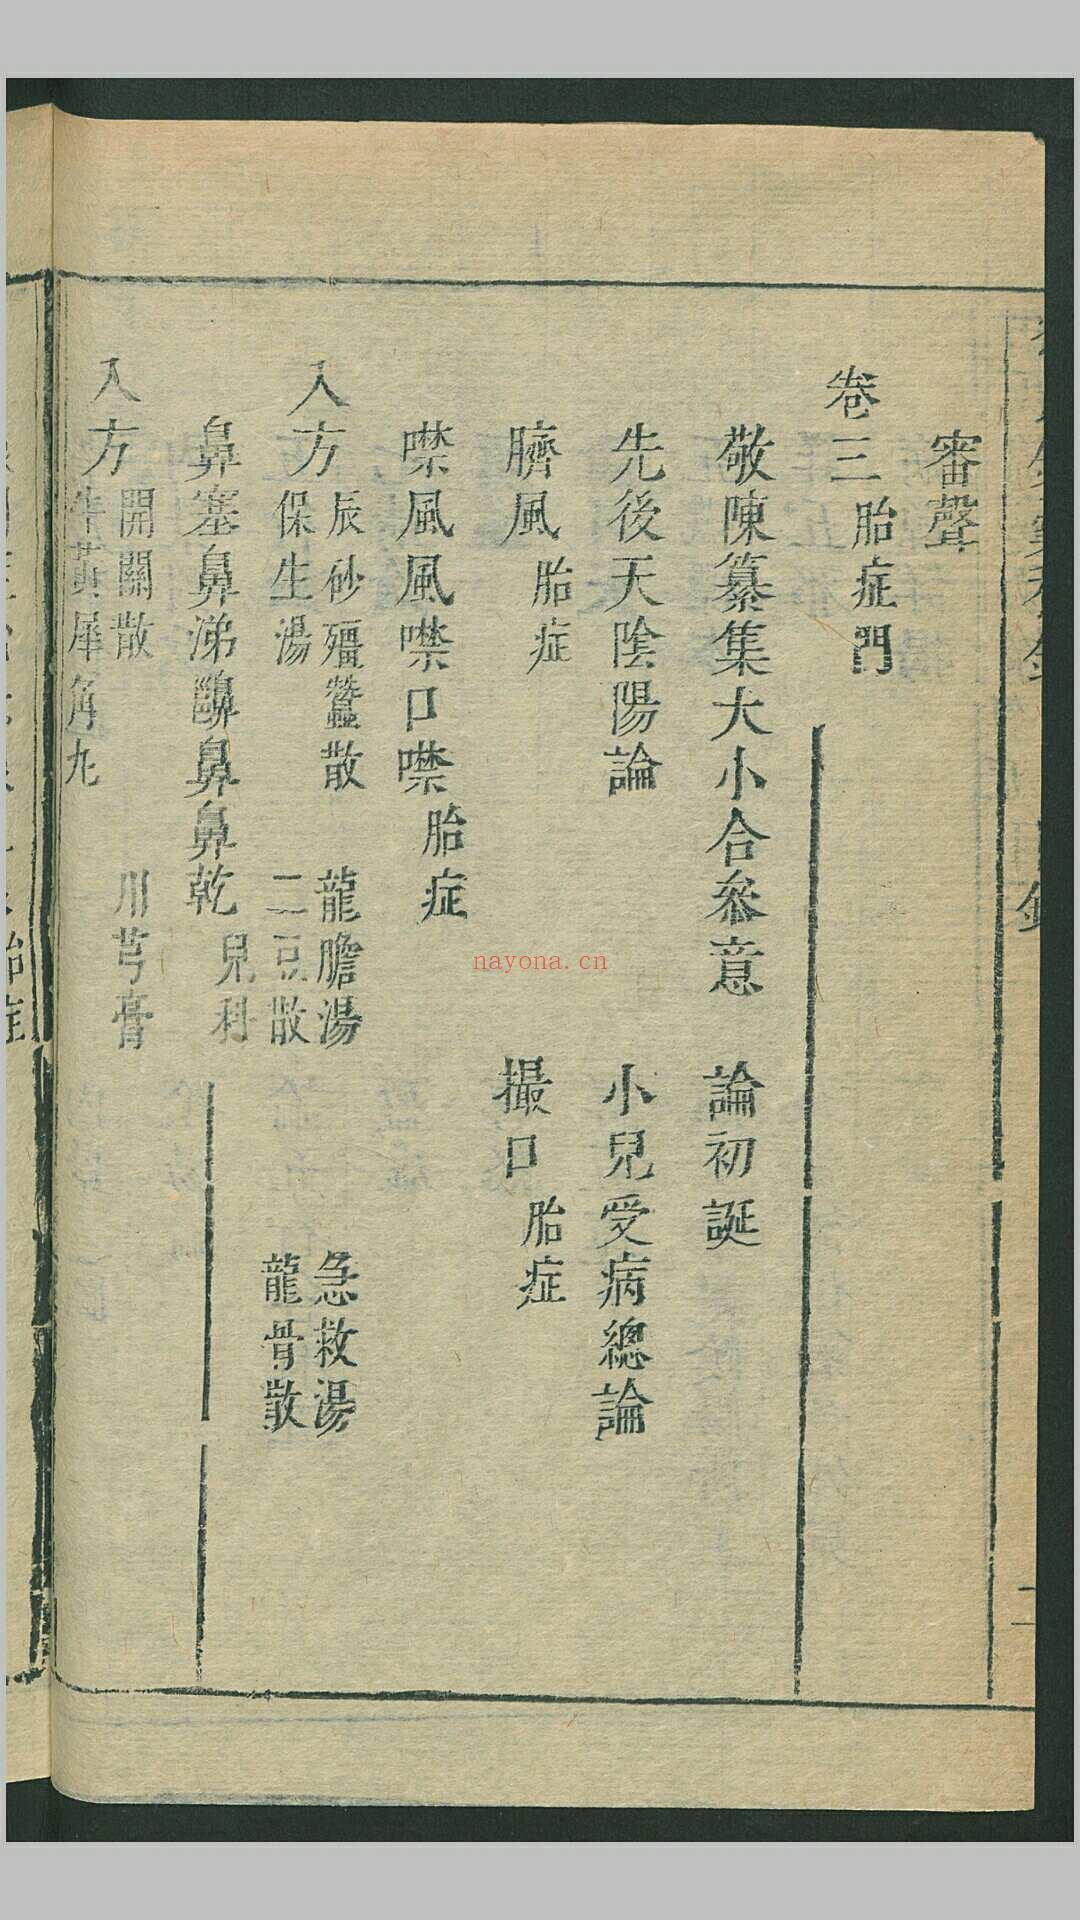 審聲
卷三 胎症門
敬陳纂集大小合參意 論初誕
先後天陰陽論 小兒受病總論
臍風 胎症 撮口 胎症
噤風風噤口噤 胎症
入方 辰砂殭蠶散 龍膽湯 急救湯
保生湯 二豆散 龍骨散
鼻塞鼻涕齆鼻鼻乾 兒科
入方 開關散 川芎膏
牛黃犀角九
nayona.cn